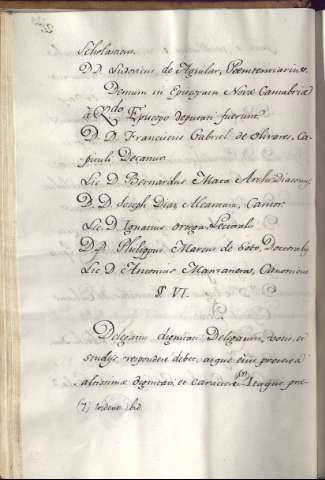 Scholasticus.
D. D. Ludovicus de Aguilar, Poenitentiarius.
Demum in Episcopatu Novae Cantabriae
a Rdo Episcopo deputati fuerunt
D. D. Franciscus Gabriel de Olivares, Ca-
pituli Decanus.
Lic. D. Bernardus Mata Archi Diaconus,
D. D. Joseph Diaz Alcantara, Cantor.
Lic. D. Ignatius Ortega, Lectoralis.
D. D. Philippus Marcus de Soto, Doctoralis
Lic. D. Antonius Manzaneda, Canonicus
§. VI.
Delegati dignitati Delegatum, votis, et
studijs respondere debet, atque ejus procurā
altissimae dignitati, et caractere (1). Itaque prae-
(1) trident. ibid.